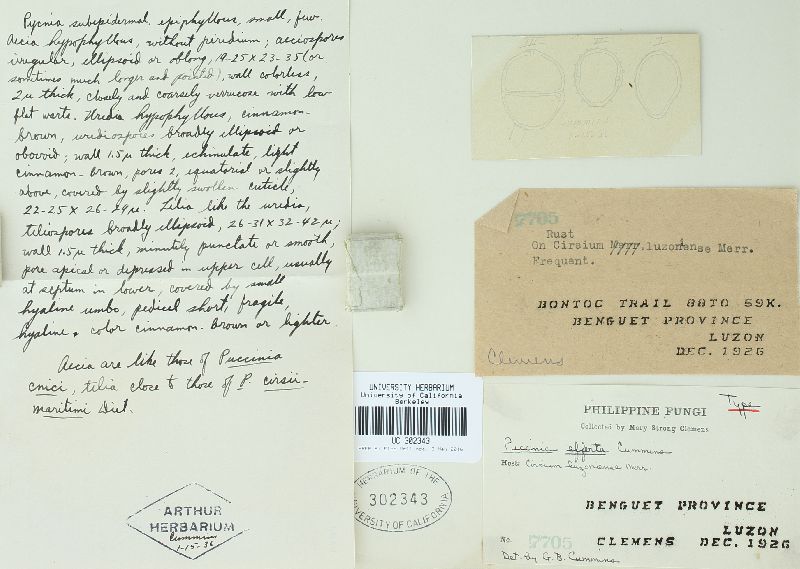 Pycnia subepidermal, epiphyllous, small, few.
Aecia hypophyllous, without peridium; aeciospores
irregular, ellipsoid or oblong, 19-25 x 23-35 (or
sometimes much longer and pointed), wall colorless,
2µ thick, closely and coarsely verrucose with low
flat warts. Uredia hypophyllous, cinnamon-
brown, urediospores broadly ellipsoid or
obovoid; wall 1.5µ thick, echinulate, light
cinnamon-brown, pores 2, equatorial or slightly
above, covered by slightly swollen cuticle,
22-25 x 26-29µ. Telia like the uredia,
teliospores broadly ellipsoid, 26-31 x 32-42µ;
wall 1.5µ thick, minutely punctate or smooth,
pore apical or depressed in upper cell, usually
at septum in lower, covered by small
hyaline umbo, pedicel short, fragile,
hyaline. color cinnamon-brown or lighter.
Aecia are like those of Puccinia
cnici, telia close to those of P. cirsii-
maritimi Diet.
ARTHUR
HERBARIUM
Cummins
1-15-36
III II I
7705
Rust
On Cirsium Merr. luzonense Merr.
Frequent.
BONTOC TRAIL 88TO 59K.
BENGUET PROVINCE
LUZON
DEC. 1926
Clemens
UNIVERSITY HERBARIUM
University of California
Berkeley
UC 302343
HERBARIUM OF THE
302343
UNIVERSITY OF CALIFORNIA
Type
PHILIPPINE FUNGI
Collected by Mary Strong Clemens
Puccinia efferta Cummins
Host: Cirsium luzonense Merr.
BENGUET PROVINCE
LUZON
No. 7705 CLEMENS DEC. 1926
Det. by G. B. Cummins